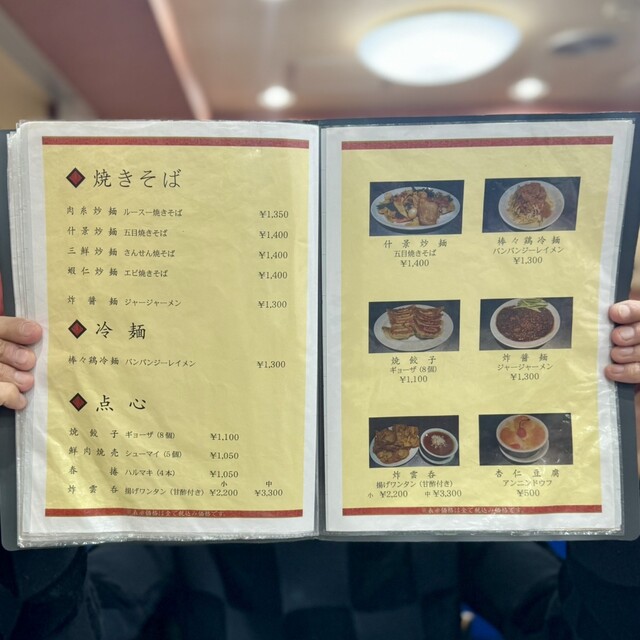 焼きそば
肉糸炒麺 ルースー焼きそば ¥1,350
什景炒麺 五目焼きそば ¥1,400
三鮮炒麺 さんせん焼そば ¥1,400
蝦仁炒麺 エビ焼きそば ¥1,400
炸醤麺 ジャージャーメン ¥1,300
冷麺
棒々鶏冷麺 バンバンジーレイメン ¥1,300
点心
焼餃子 ギョーザ(8個) ¥1,100
鮮肉焼売 シューマイ(5個) ¥1,050
春捲 ハルマキ(4本) ¥1,050
小 中
炸雲呑 揚げワンタン(甘酢付き) ¥2,200 ¥3,300
※表示価格は全て税込み価格です
什景炒麺
五目焼きそば
¥1,400
棒々鶏冷麺
バンバンジーレイメン
¥1,300
焼餃子
ギョーザ(8個)
¥1,100
炸醤麺
ジャージャーメン
¥1,300
炸雲呑
揚げワンタン(甘酢付き)
小 ¥2,200 中 ¥3,300
杏仁豆腐
アンニンドウフ
¥500
※表示価格は全て税込み価格です